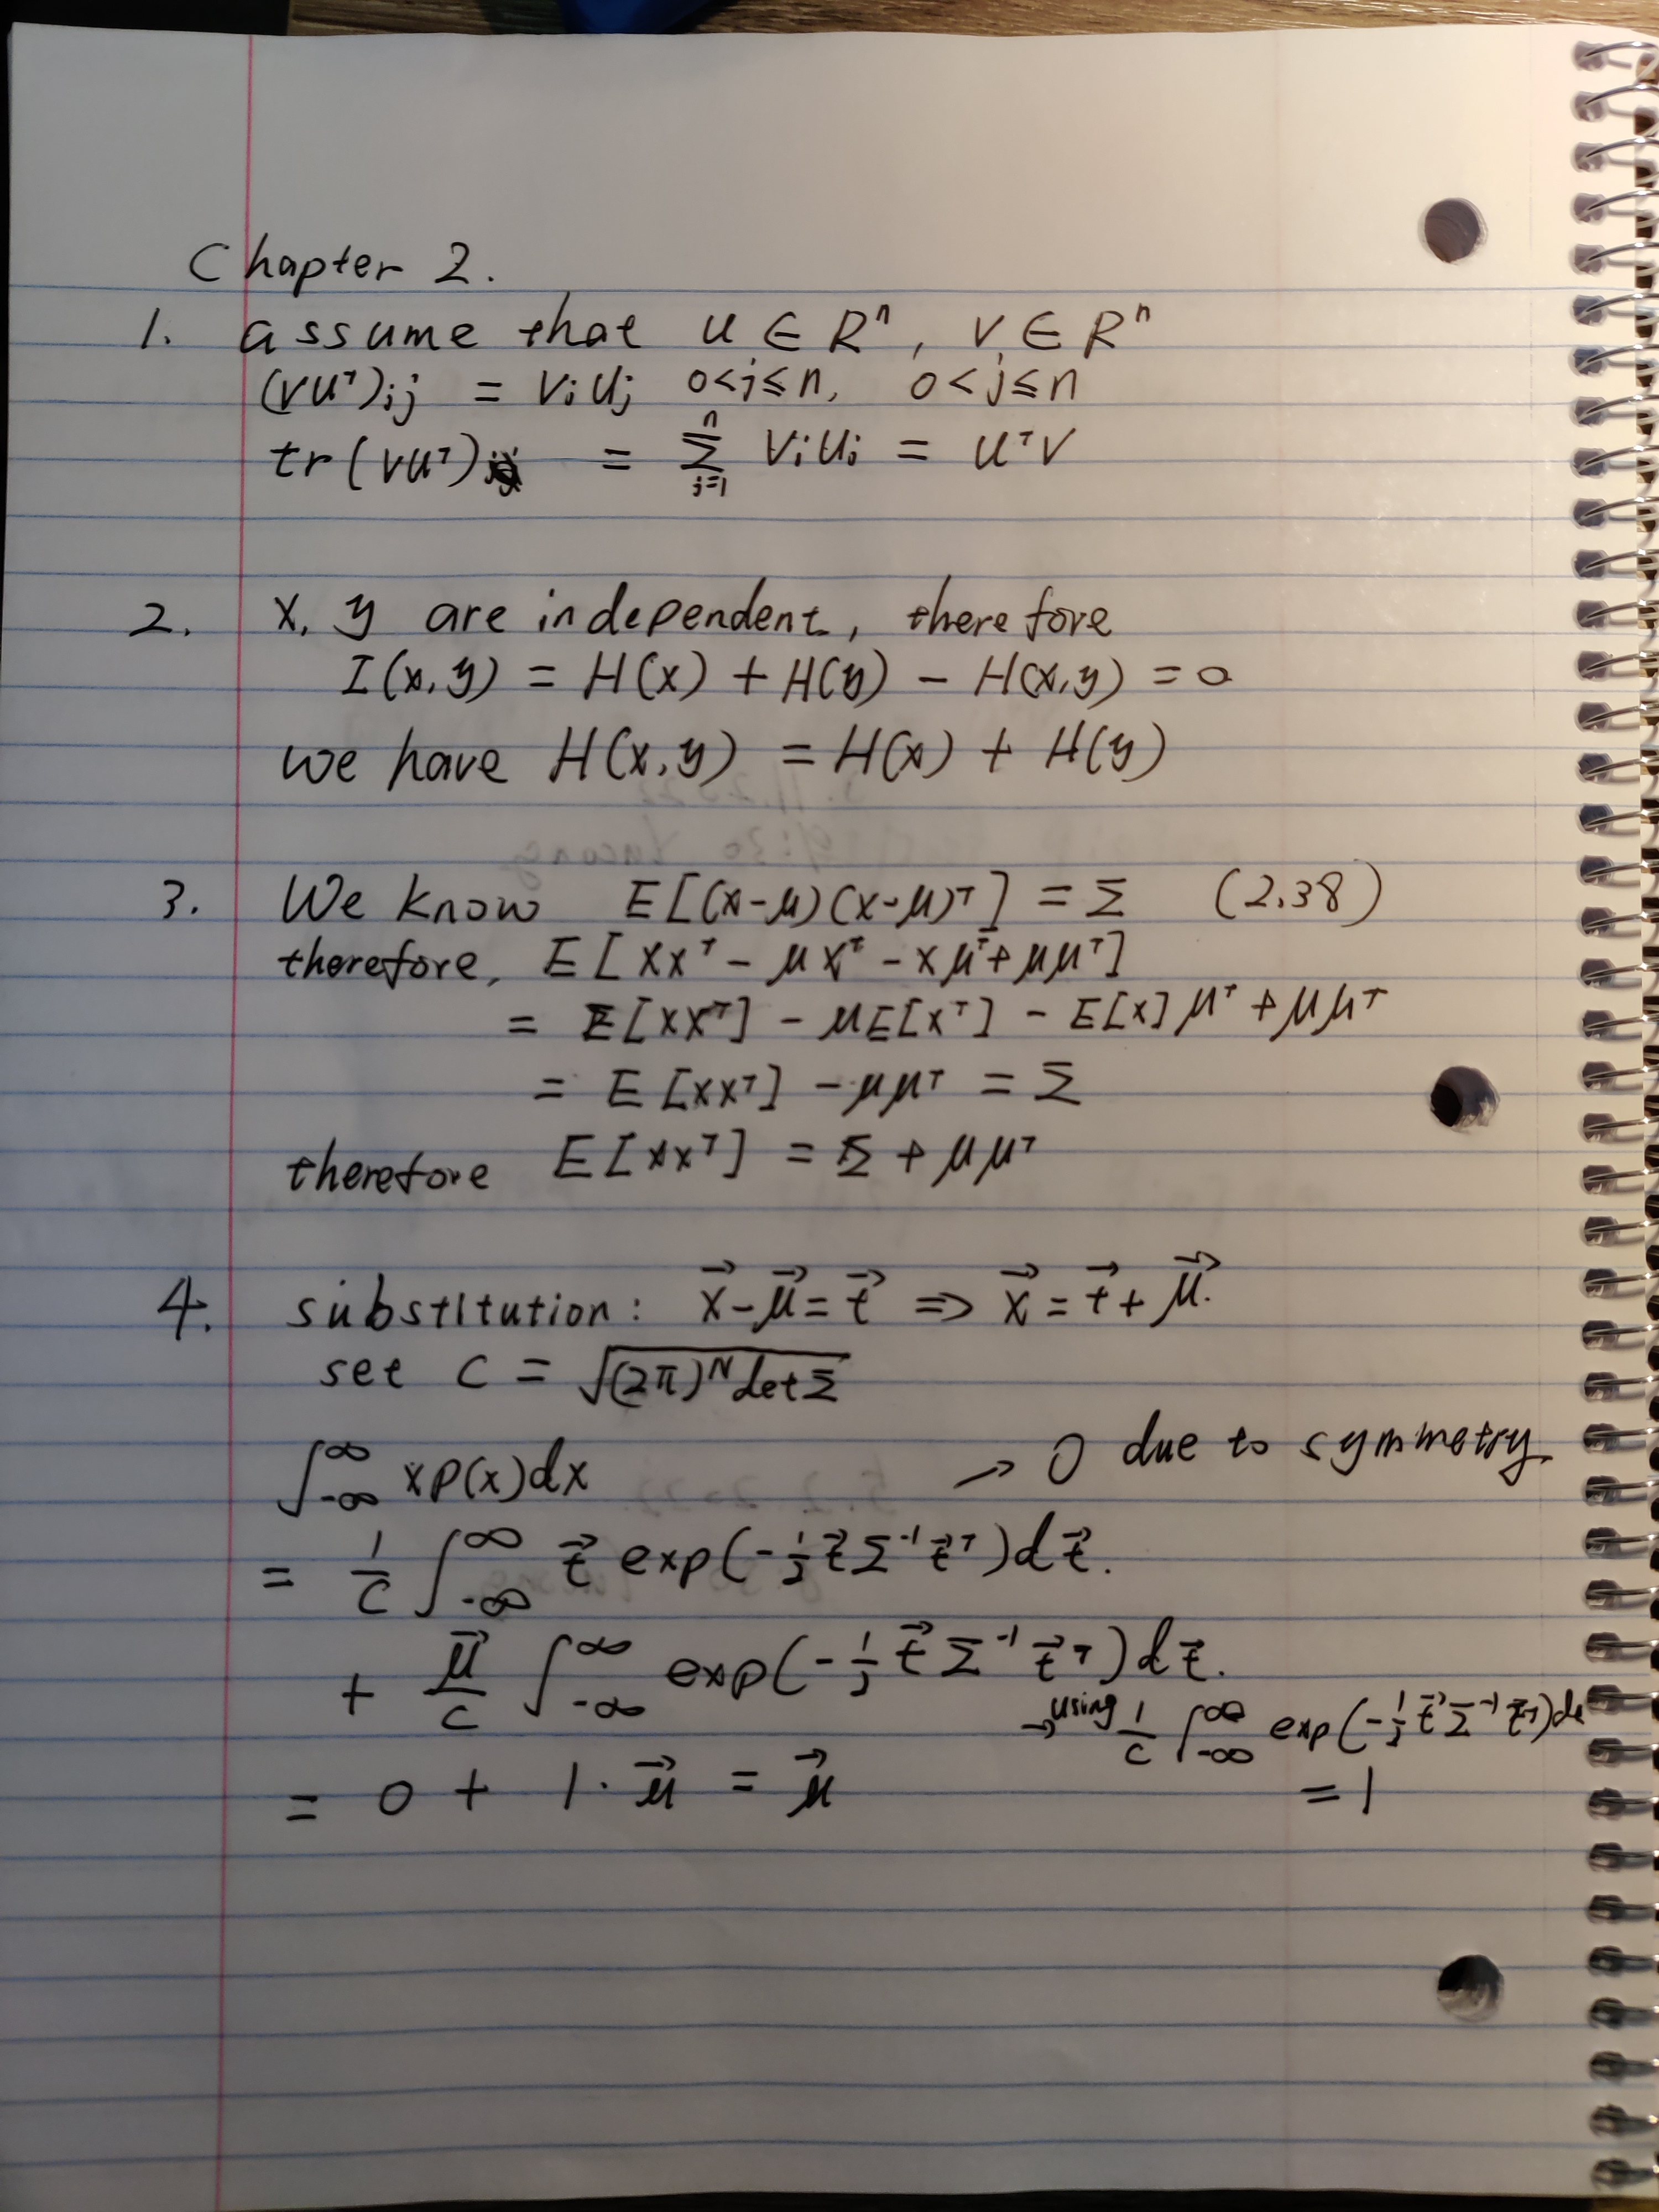 Chapter 2.
1. assume that u ∈ Rⁿ, v ∈ Rⁿ
(vuᵀ)ij = vi uj 0<i≤n, 0<j≤n
tr(vuᵀ) = Σⁿⱼ₌₁ vi ui = uᵀv
2. x, y are independent, therefore
I(x,y) = H(x) + H(y) − H(x,y) = 0
we have H(x,y) = H(x) + H(y)
3. We know E[(x−μ)(x−μ)ᵀ] = Σ (2.38)
therefore, E[xxᵀ − μxᵀ − xμᵀ + μμᵀ]
= E[xxᵀ] − μE[xᵀ] − E[x]μᵀ + μμᵀ
= E[xxᵀ] − μμᵀ = Σ
therefore E[xxᵀ] = Σ + μμᵀ
4. substitution: x⃗ − μ⃗ = t⃗ ⇒ x⃗ = t⃗ + μ⃗.
set C = √((2π)ᴺ det Σ)
∫_{-∞}^{∞} xp(x)dx → 0 due to symmetry
= 1/C ∫_{-∞}^{∞} t⃗ exp(−½ t⃗ Σ⁻¹ t⃗ᵀ)dt⃗.
+ μ⃗/C ∫_{-∞}^{∞} exp(−½ t⃗ Σ⁻¹ t⃗ᵀ)dt⃗.
→ using 1/C ∫_{-∞}^{∞} exp(−½ t⃗ Σ⁻¹ t⃗ᵀ)dt
= 0 + 1·μ⃗ = μ⃗ = 1